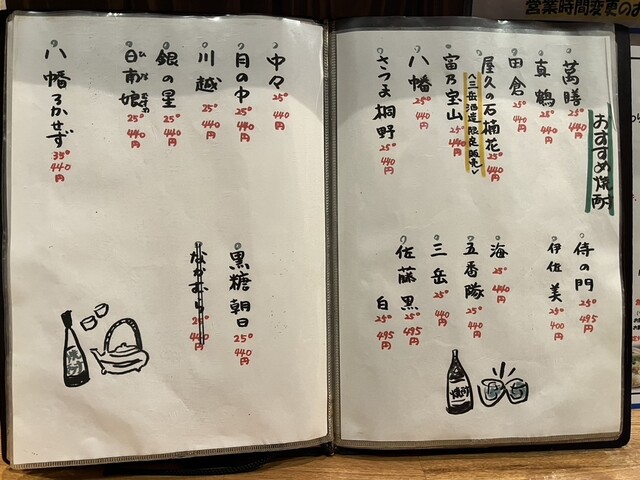 営業時間変更のお
おすすめ焼酎
萬膳 25° 440円
真鶴 25° 440円
田倉 25° 440円
屋久の石楠花 25° 440円
〈三岳酒造限定販売〉
富乃宝山 25° 440円
八幡 25° 440円
さつま桐野 25° 440円
侍の門 25° 495円
伊佐美 25° 400円
海 25° 440円
五番隊 25° 440円
三岳 25° 440円
佐藤 黒 25° 495円
白 25° 495円
焼酎
中々 25° 440円
月の中 25° 440円
川越 25° 440円
銀の星 25° 440円
日南娘 ひな むすめ 25° 440円
八幡ろかせず 35° 440円
黒糖 朝日 25° 440円
なかむら 25° 440円
焼酎